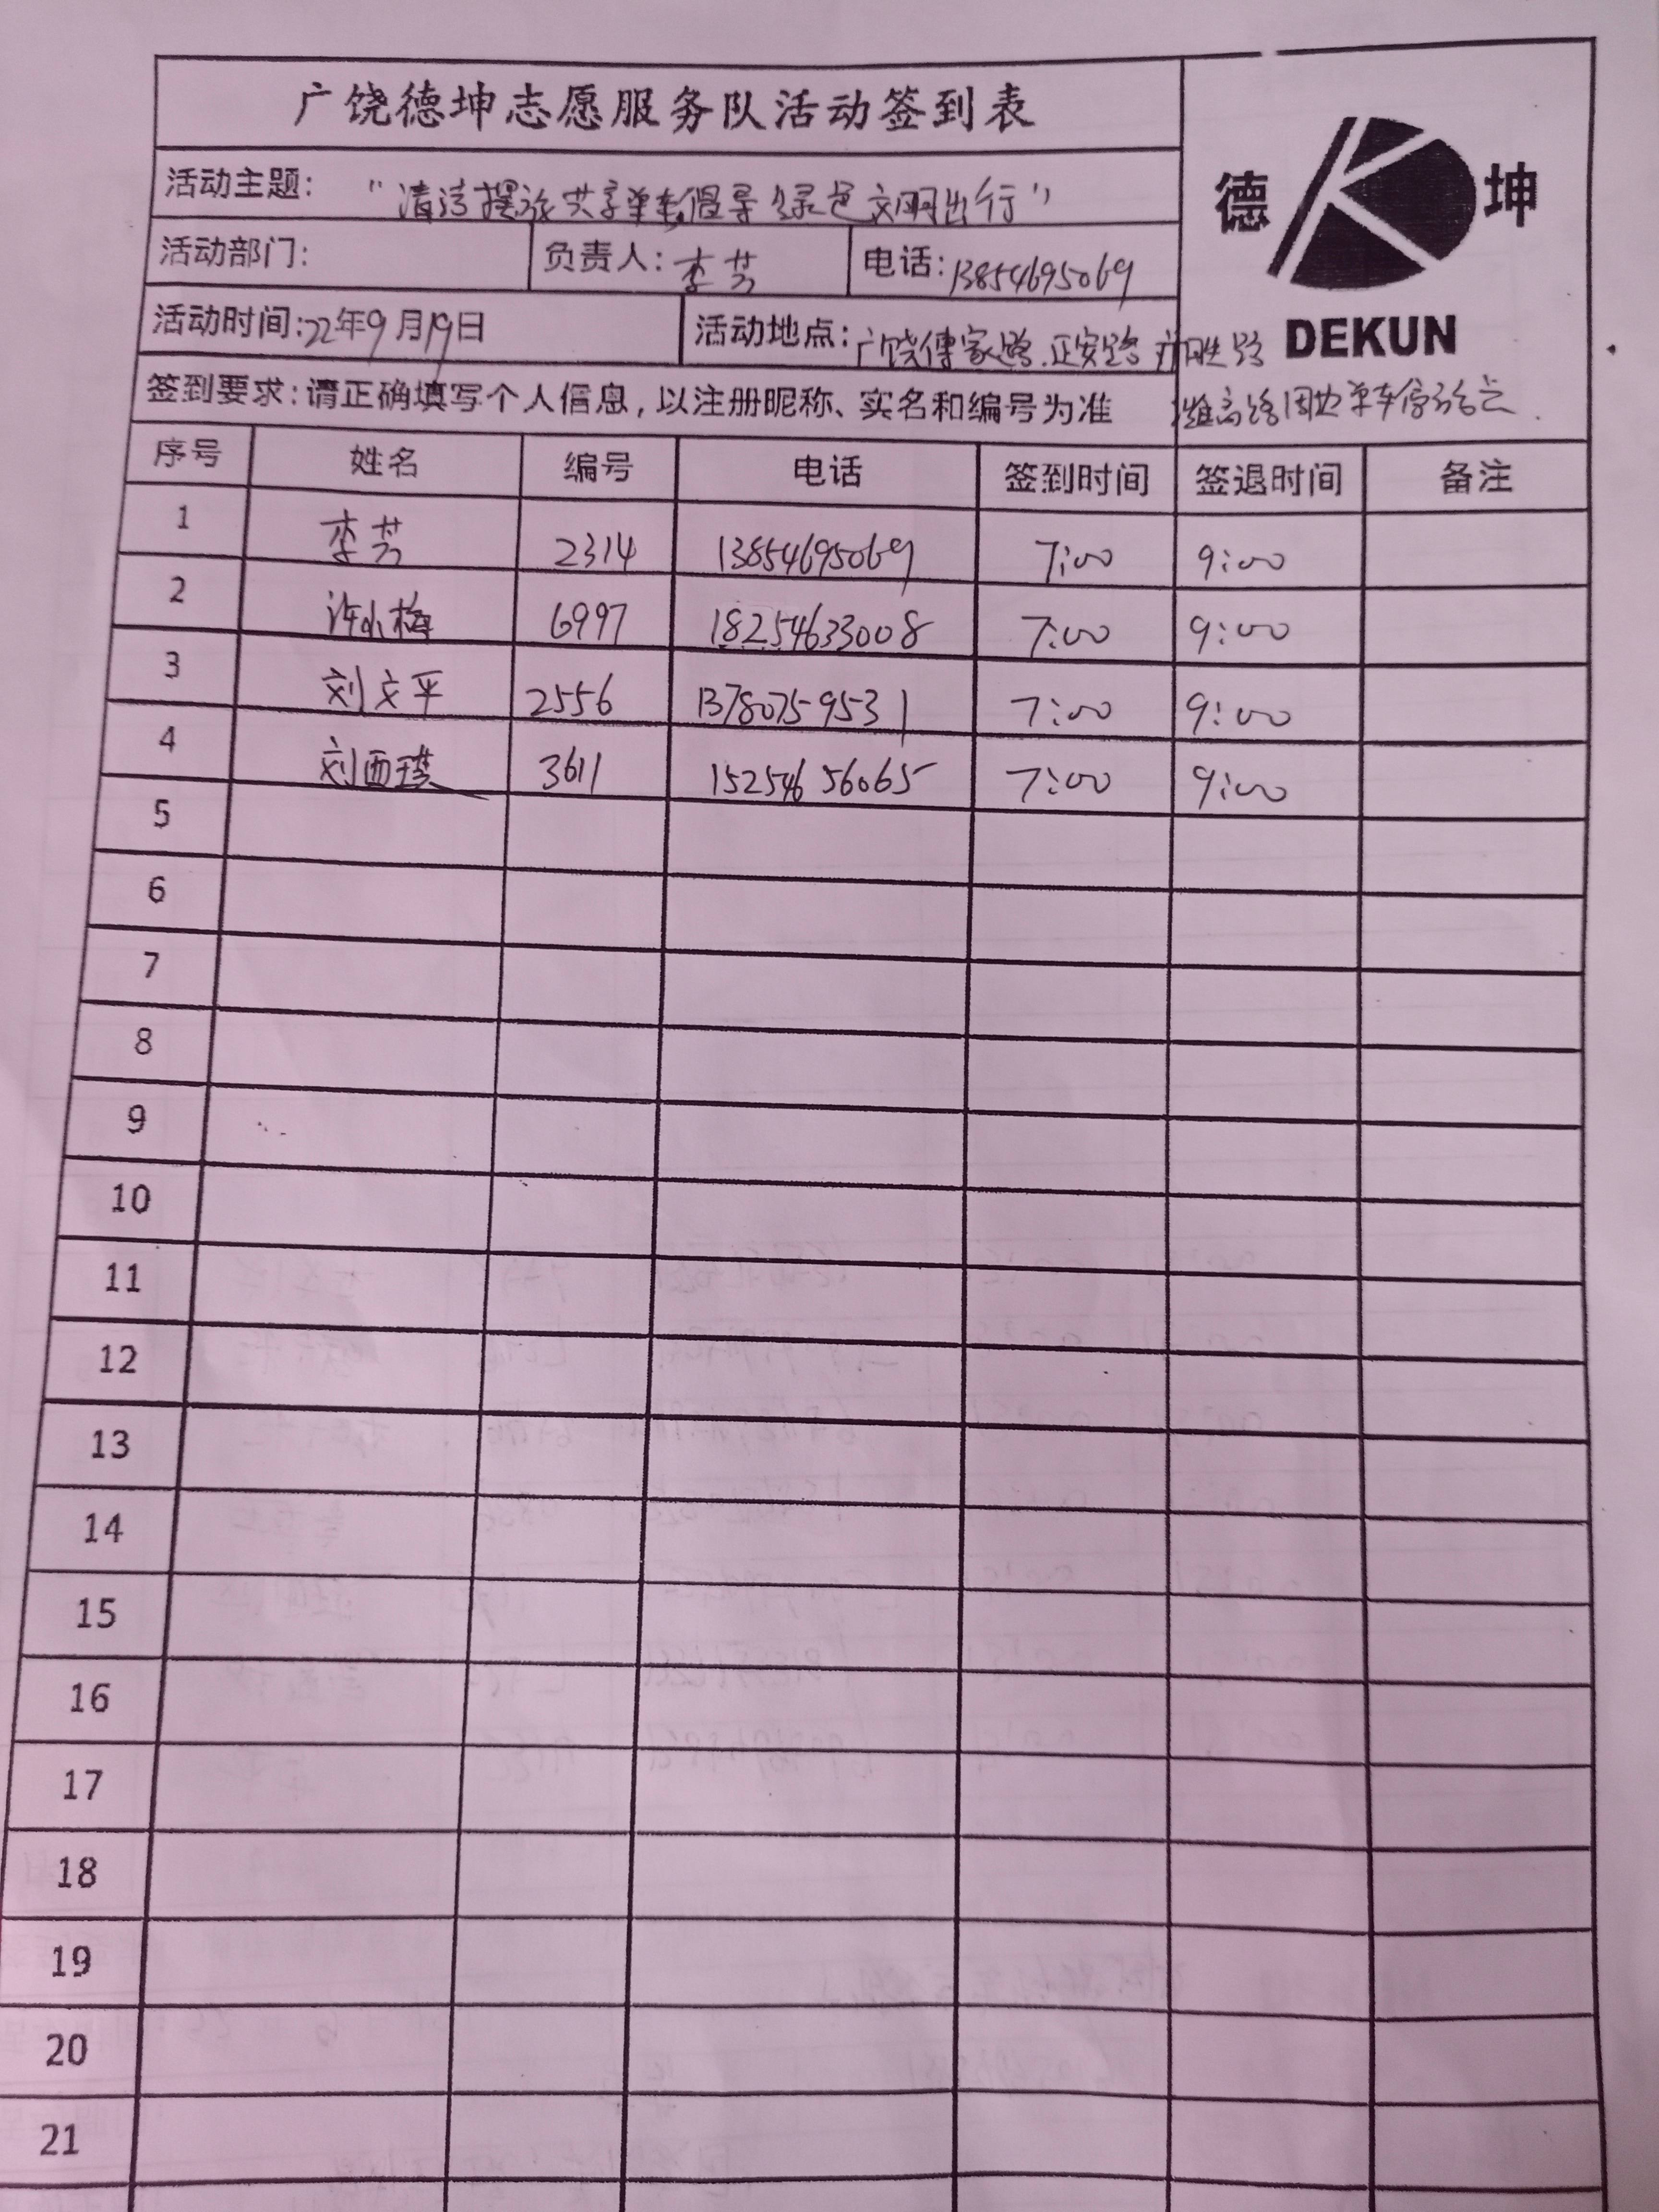 广饶德坤志愿服务队活动签到表
德 坤
DEKUN
活动主题： “清洁摆放共享单车倡导绿色文明出行”
活动部门： 负责人：李芳 电话：13854695069
活动时间：22年9月19日 活动地点：广饶傅家路.正安路 广胜路
潍高路周边单车停放点.
签到要求：请正确填写个人信息，以注册昵称、实名和编号为准
序号 姓名 编号 电话 签到时间 签退时间 备注
1 李芳 2314 13854695069 7:00 9:00
2 许小梅 6997 18254633008 7:00 9:00
3 刘文平 2556 13780759531 7:00 9:00
4 刘西瑛 3611 15254656065 7:00 9:00
5
6
7
8
9
10
11
12
13
14
15
16
17
18
19
20
21